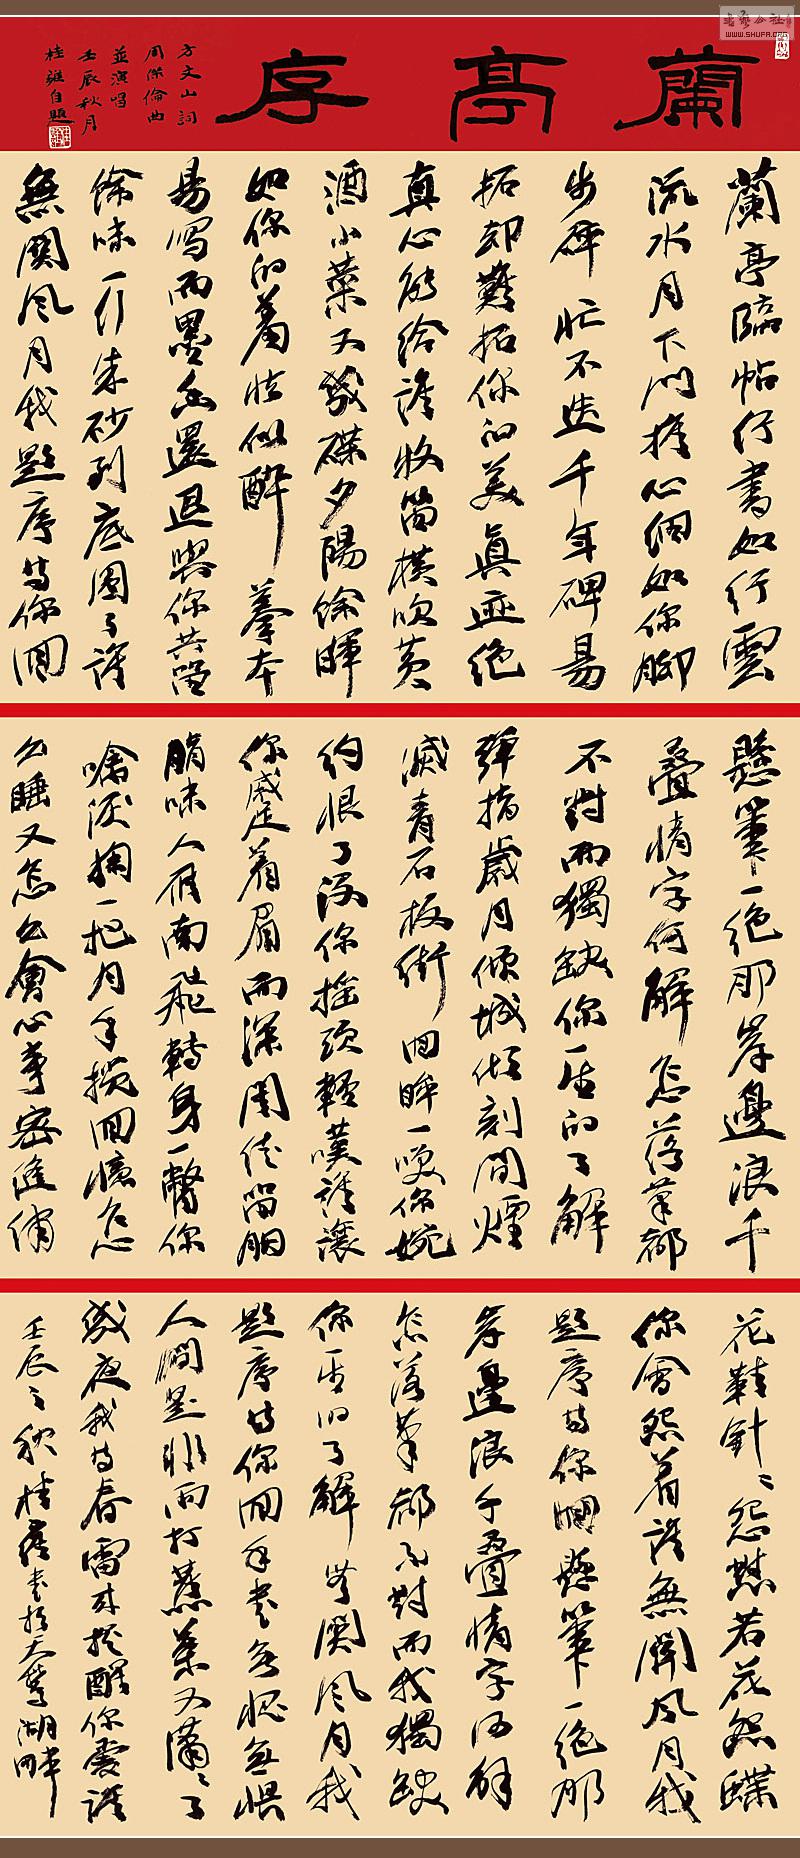 書藝公社
WWW.SHUFA.ORG
蘭亭序
方文山詞
周傑倫曲
並演唱
壬辰秋月
桂雍自題
蘭亭臨帖行書如行雲
流水月下門推心細如你脚
步碎忙不迭千年碑易
拓却難拓你的美真迹絶
真心能給誰牧笛横吹黄
酒小菜又幾碟夕陽餘暉
如你的羞怯似醉摹本
易寫而墨香還退與你共留
餘味一行朱砂到底圈了誰
無關風月我題序等你回
懸筆一絶那岸邊浪千
叠情字何解怎落筆都
不對而獨缺你一生的了解
彈指歲月傾城傾刻間煙
滅青石板街回眸一笑你婉
約恨了没你摇頭輕嘆誰讓
你蹙着眉而深閨徒留胭
脂味人雁南飛轉身一瞥你
噙淚掬一把月手攬回憶怎
么睡又怎么會心事密縫綉
花鞋針針怨懟若花怨蝶
你會怨着誰無關風月我
題序等你回懸筆一絶那
岸邊浪千叠情字何解
怎落筆都不對而我獨缺
你一生的了解無關風月我
題序等你回手書無愧無懼
人間是非雨打蕉葉又瀟瀟了
幾夜我等春雷來提醒你愛誰
壬辰之秋桂雍書於天鵝湖畔